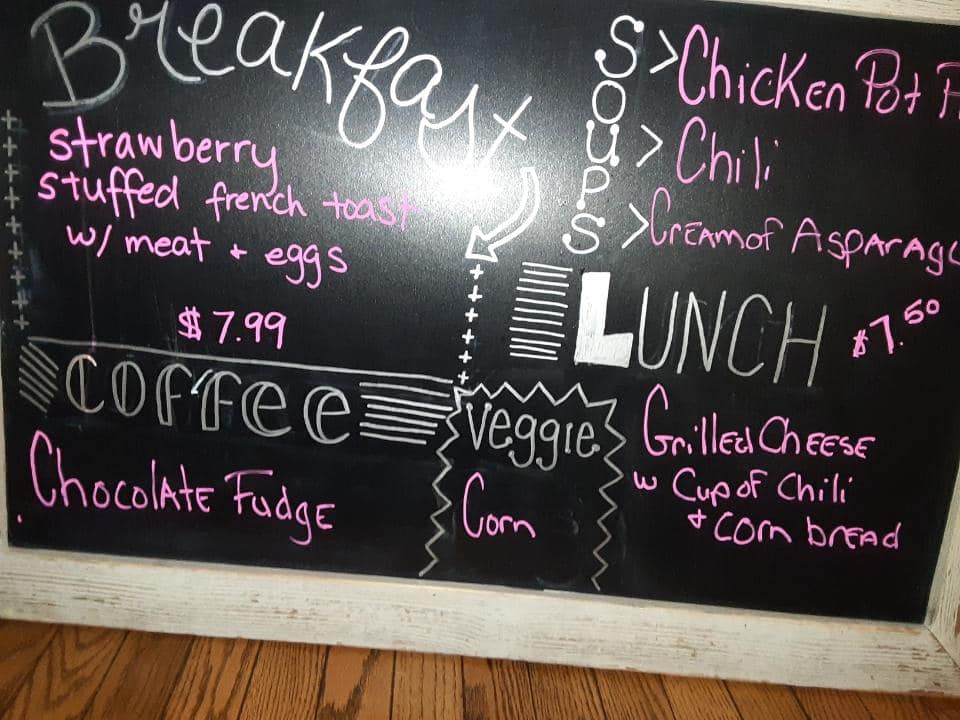 Breakfast
strawberry
stuffed french toast
w/ meat + eggs
$7.99
SOUPS
> Chicken Pot
> Chili
> Cream of
LUNCH $7.50
Grilled Cheese
w Cup of Chili
+ Corn bread
COFFEE
Chocolate Fudge
Veggie
Corn